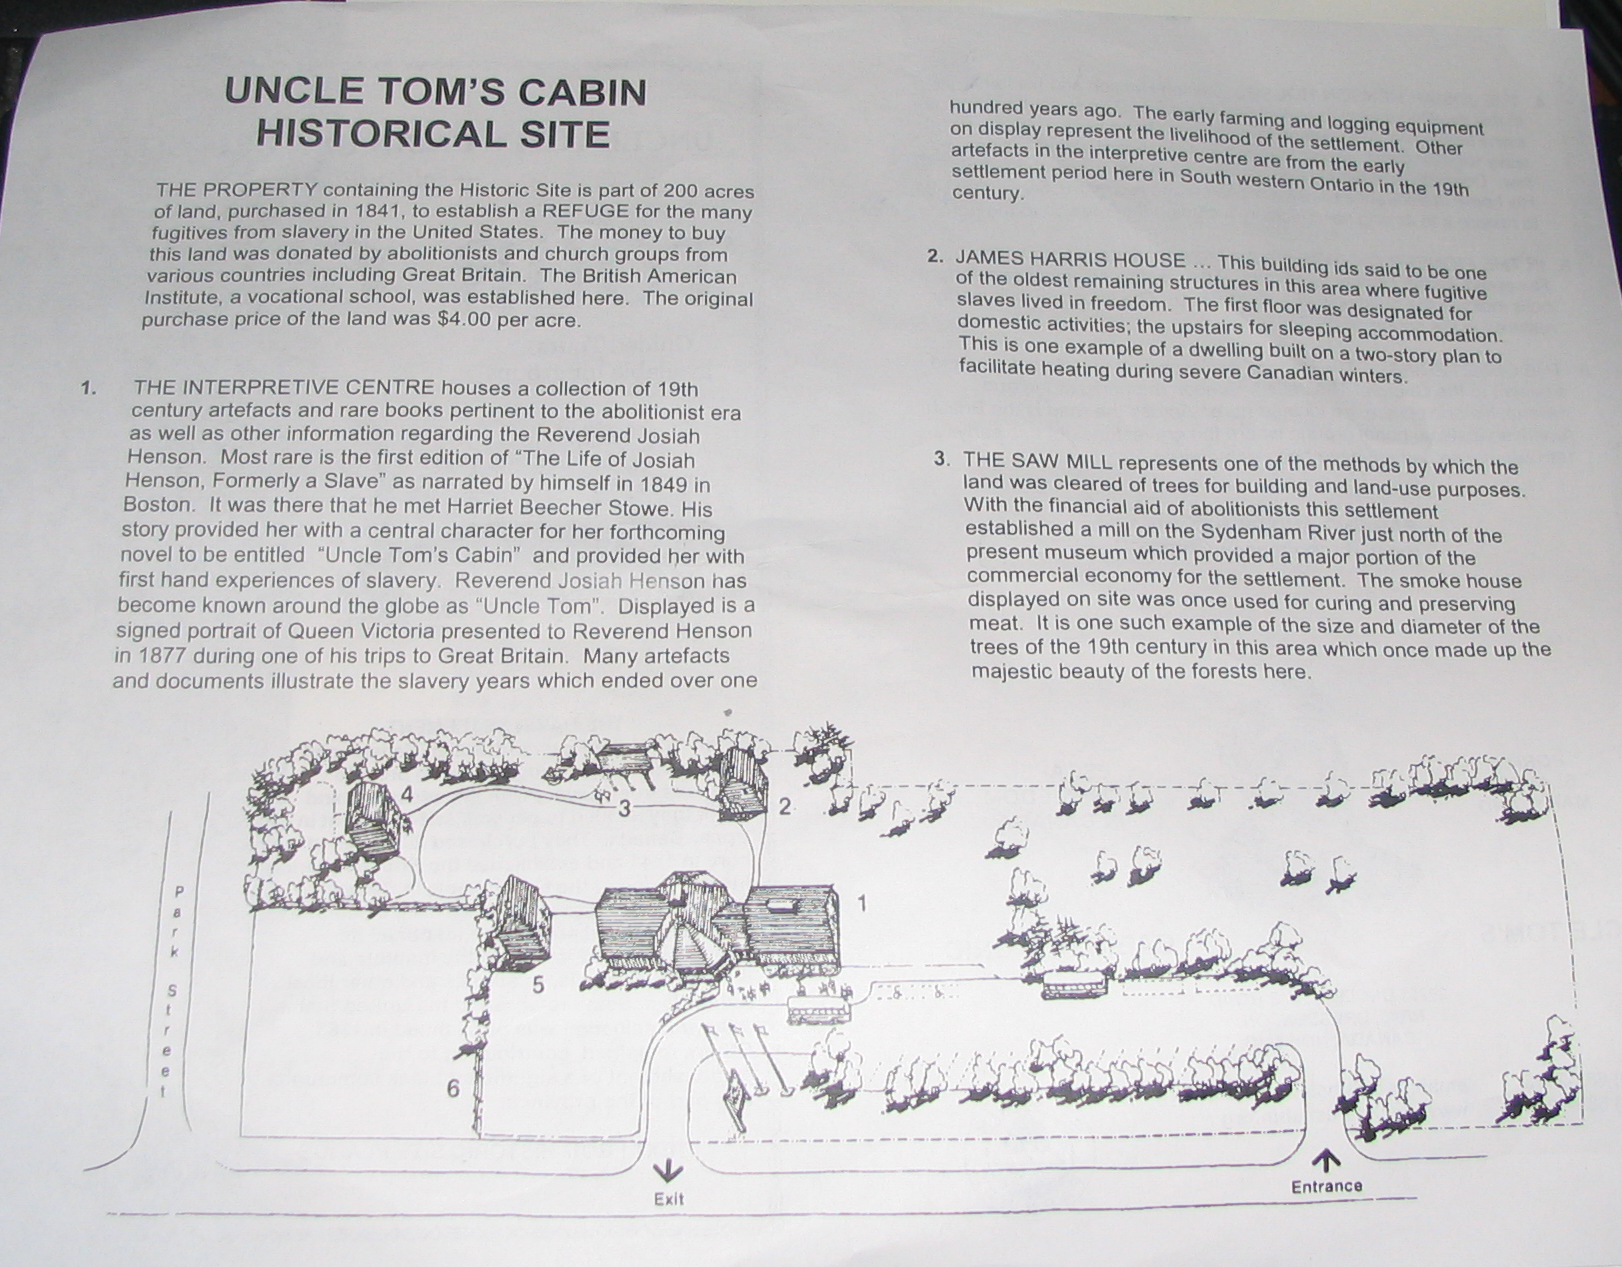 UNCLE TOM'S CABIN
HISTORICAL SITE
THE PROPERTY containing the Historic Site is part of 200 acres
of land, purchased in 1841, to establish a REFUGE for the many
fugitives from slavery in the United States. The money to buy
this land was donated by abolitionists and church groups from
various countries including Great Britain. The British American
Institute, a vocational school, was established here. The original
purchase price of the land was $4.00 per acre.
1. THE INTERPRETIVE CENTRE houses a collection of 19th
century artefacts and rare books pertinent to the abolitionist era
as well as other information regarding the Reverend Josiah
Henson. Most rare is the first edition of “The Life of Josiah
Henson, Formerly a Slave” as narrated by himself in 1849 in
Boston. It was there that he met Harriet Beecher Stowe. His
story provided her with a central character for her forthcoming
novel to be entitled “Uncle Tom's Cabin” and provided her with
first hand experiences of slavery. Reverend Josiah Henson has
become known around the globe as “Uncle Tom”. Displayed is a
signed portrait of Queen Victoria presented to Reverend Henson
in 1877 during one of his trips to Great Britain. Many artefacts
and documents illustrate the slavery years which ended over one
hundred years ago. The early farming and logging equipment
on display represent the livelihood of the settlement. Other
artefacts in the interpretive centre are from the early
settlement period here in South western Ontario in the 19th
century.
2. JAMES HARRIS HOUSE ... This building ids said to be one
of the oldest remaining structures in this area where fugitive
slaves lived in freedom. The first floor was designated for
domestic activities; the upstairs for sleeping accommodation.
This is one example of a dwelling built on a two-story plan to
facilitate heating during severe Canadian winters.
3. THE SAW MILL represents one of the methods by which the
land was cleared of trees for building and land-use purposes.
With the financial aid of abolitionists this settlement
established a mill on the Sydenham River just north of the
present museum which provided a major portion of the
commercial economy for the settlement. The smoke house
displayed on site was once used for curing and preserving
meat. It is one such example of the size and diameter of the
trees of the 19th century in this area which once made up the
majestic beauty of the forests here.
4
3
2
1
5
6
Park Street
Exit
Entrance